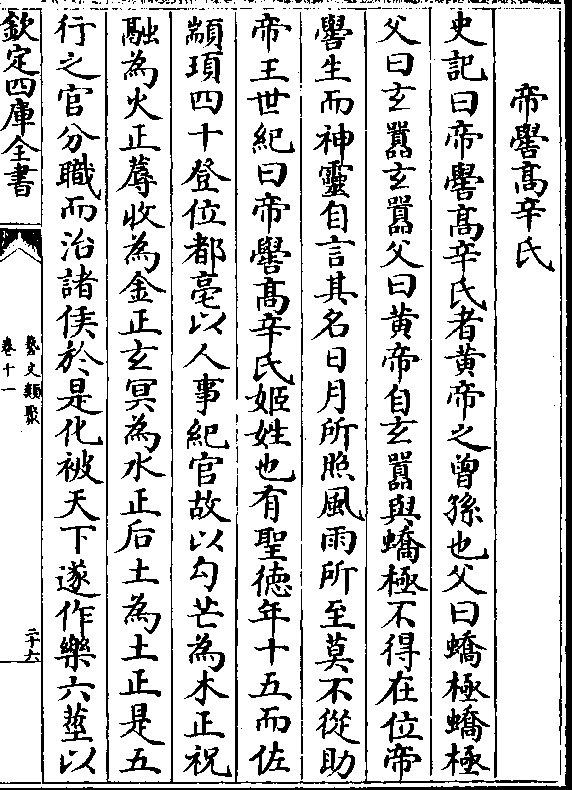 帝嚳髙辛氏
史記曰帝嚳髙辛氏者黄帝之曽孫也父曰蟜極蟜極
父曰玄囂玄囂父曰黄帝自玄囂與蟜極不得在位帝
嚳生而神靈自言其名日月所照風雨所至莫不從助
帝王世紀曰帝嚳髙辛氏姬姓也有聖徳年十五而佐
顓頊四十登位都亳以人事紀官故以勾芒為木正祝
融為火正蓐收為金正玄冥為水正后土為土正是五
行之官分職而治諸侯於是化被天下遂作樂六莖以
欽定四庫全書
藝文類聚
卷十一
二十六